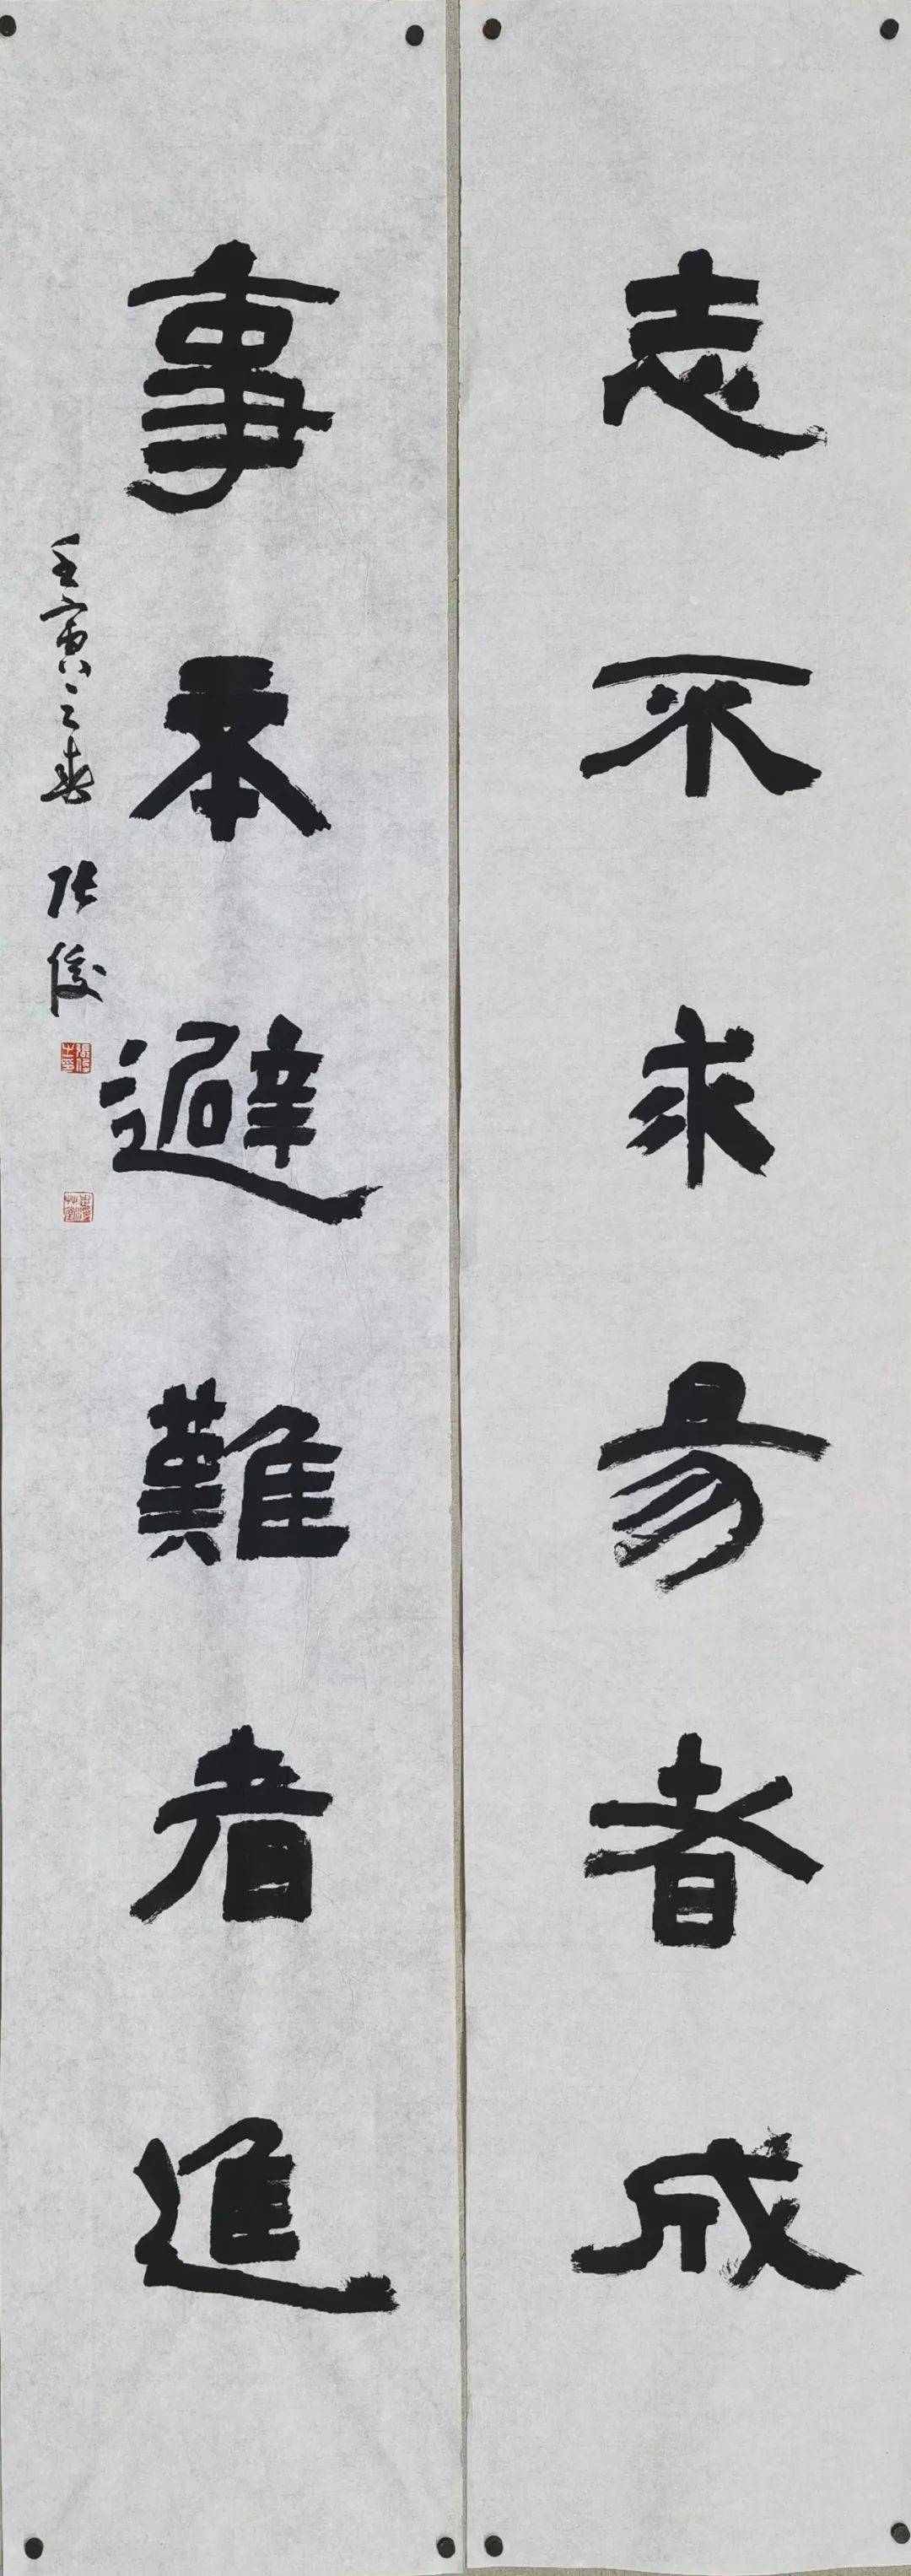 志不求易者成
事不避難者進
壬寅之春 张俊